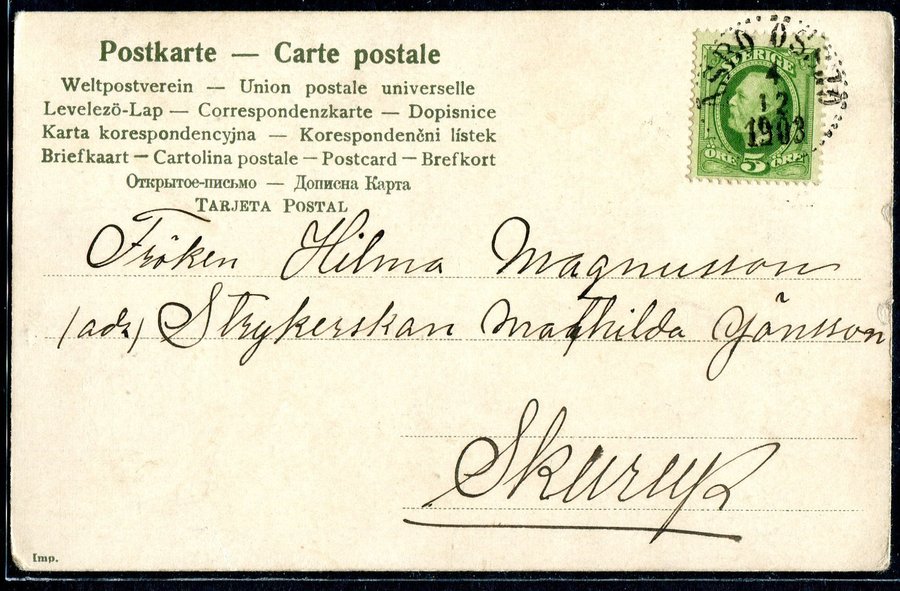 Postkarte — Carte postale
Weltpostverein — Union postale universelle
Levelező-Lap — Correspondenzkarte — Dopisnice
Karta korespondencyjna — Korespondenčni lístek
Briefkaart — Cartolina postale — Postcard — Brefkort
Открытое-письмо — Дописна Карта
TARJETA POSTAL
SVERIGE
4
12
1903
ÖRE 5 ÖRE
Fröken Hilma Magnusson
(adr) Strykerskan Mathilda Jönsson
Skurup
Imp.